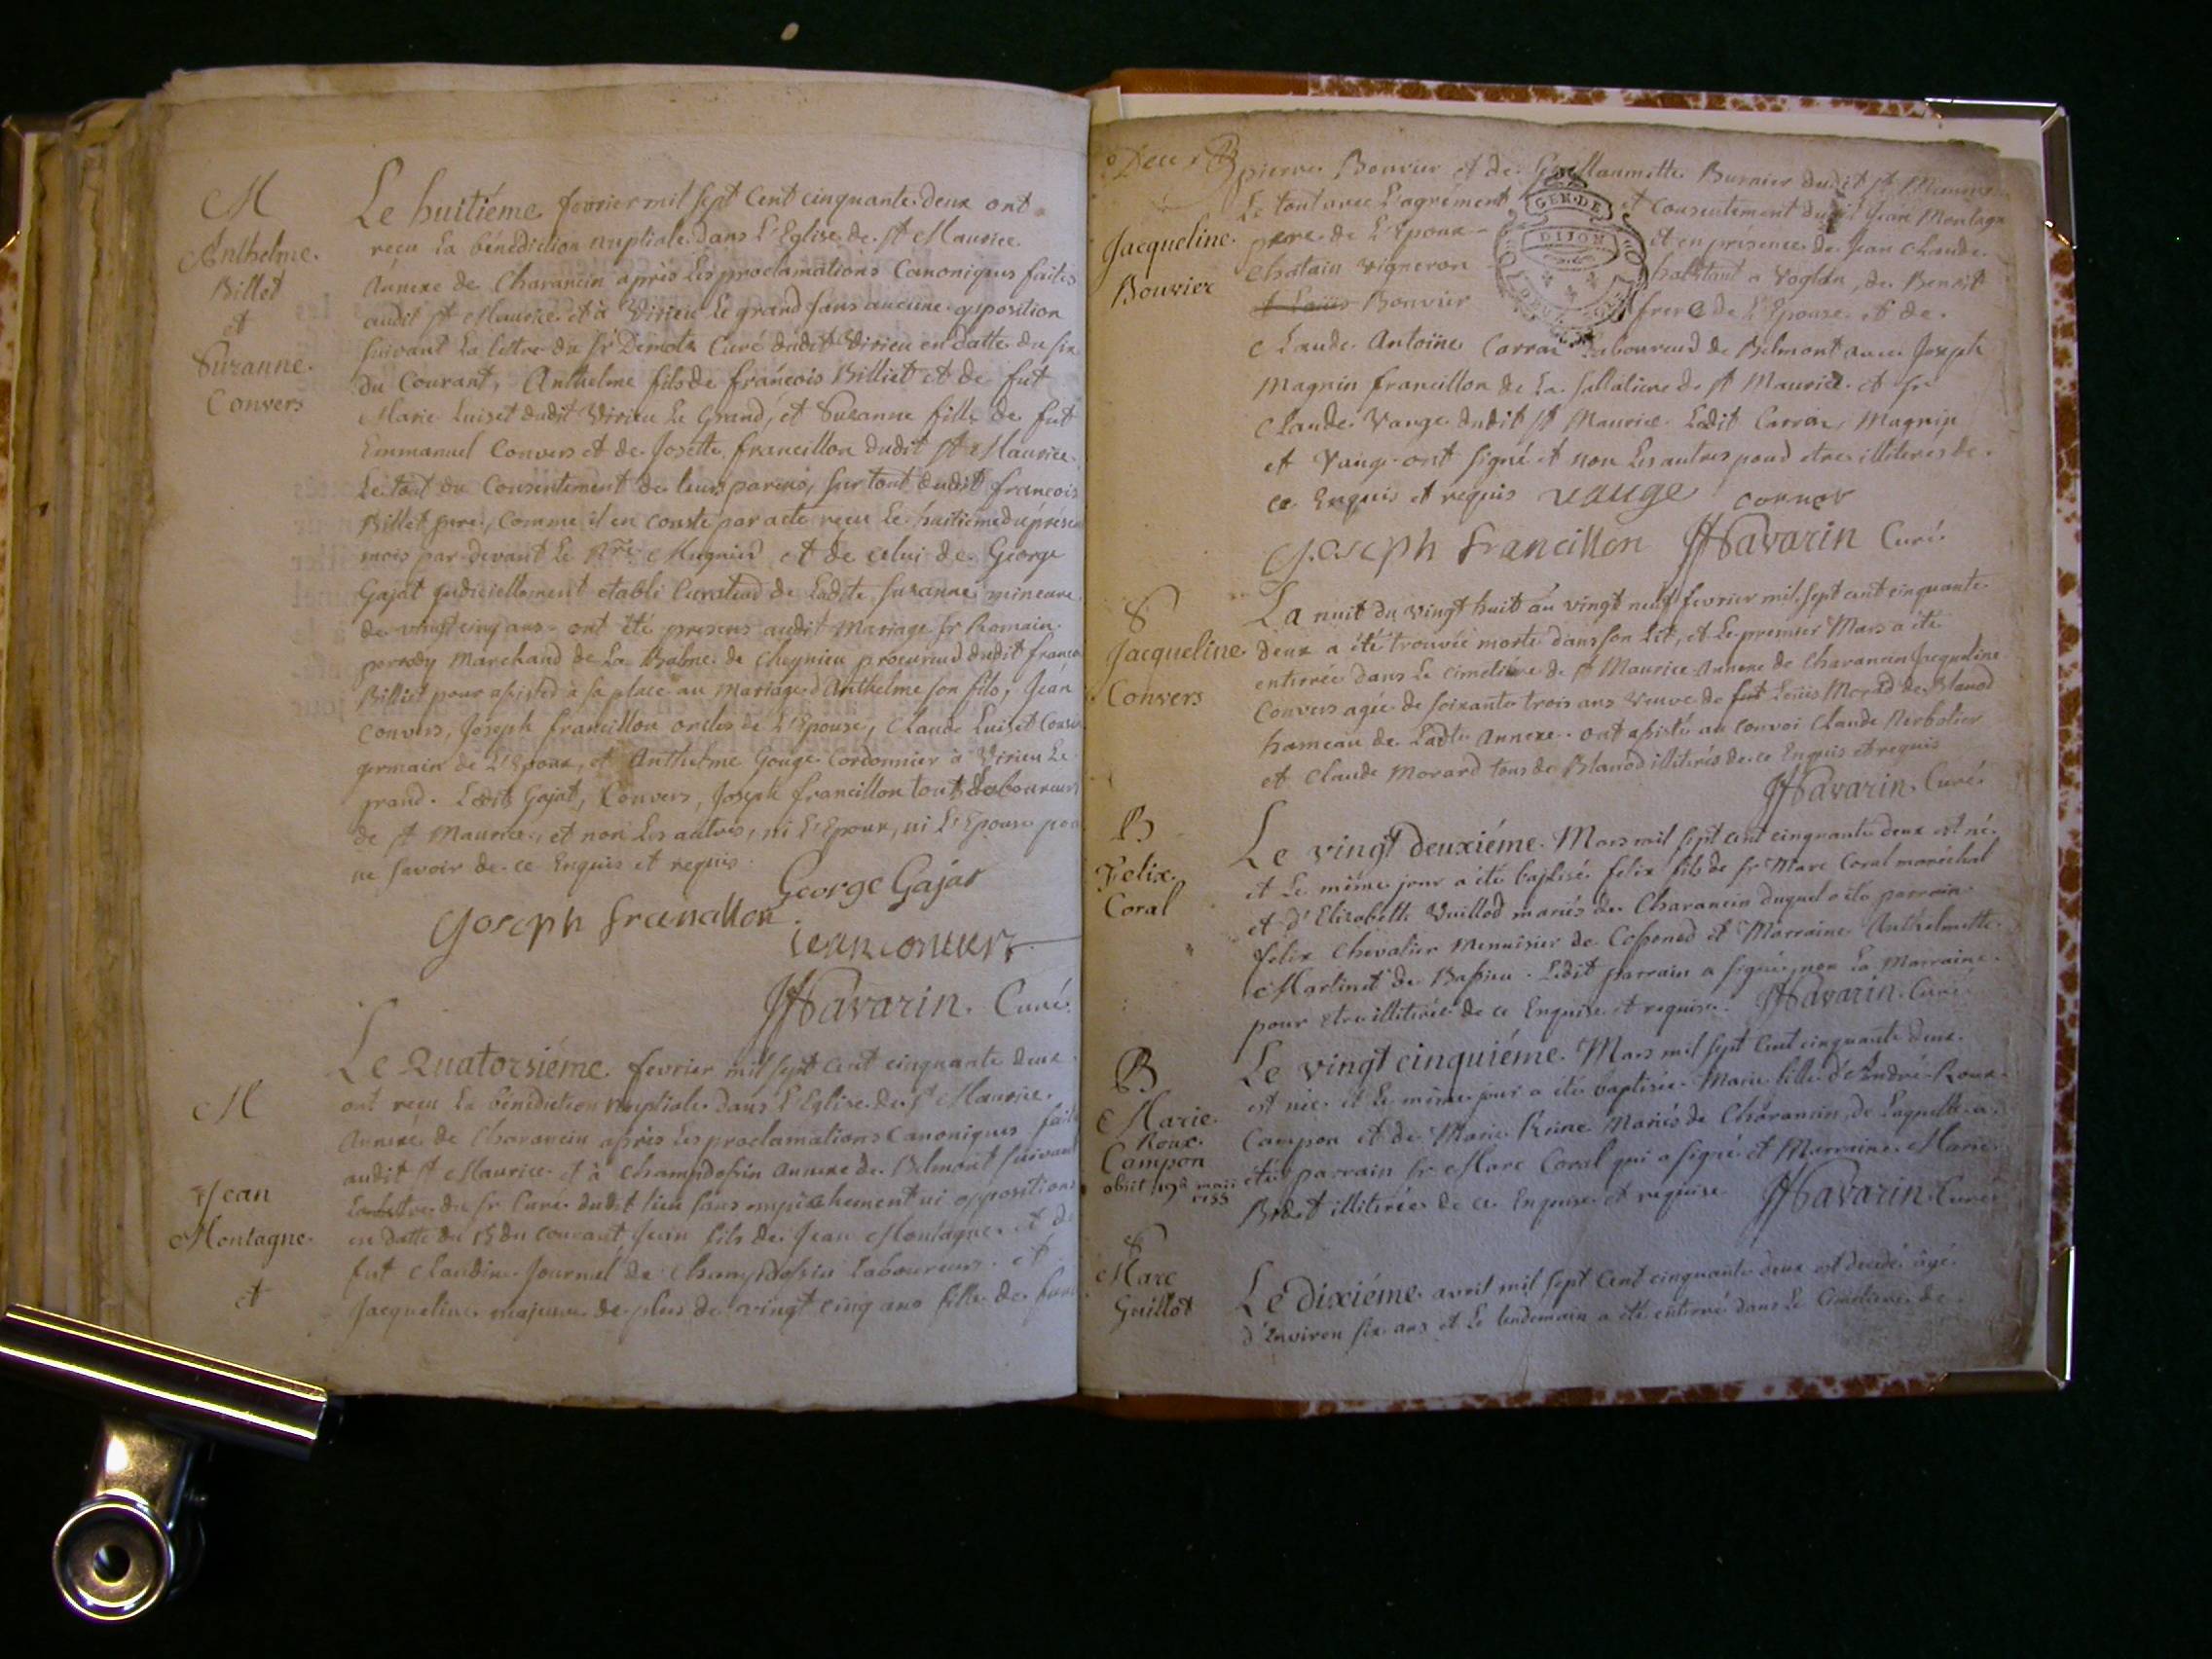 M
Anthelme
Billet
et
Suzanne
Convers
Le huitiéme fevrier mil sept Cent cinquante deux ont
reçu la bénédiction nuptiale dans L'Eglise de st Maurice
Annexe de Charancin après les proclamations Canoniques faites
audit st Maurice et à Virieu Le grand sans aucune opposition
suivant La lettre du sr Demotz Curé dudit Virieu en datte du six
du Courant, Anthelme fils de francois Billiet et de fut
Marie Luiset dudit Virieu Le Grand, et Suzanne fille de fut
Emmanuel Convers et de Josette francillon dudit st Maurice
Le tout du Consentement de leurs parens, sur tout dudit francois
Billet pere, comme il en conste par acte reçu Le huitieme du présent
mois par devant Le Mugnier et de celui de George
Gajat judiciellement etabli Curateur de Ladte Suzanne mineure
de vingt cinq ans - ont été presens audit Mariage sr Romain
Marchand de La Balme de Cheynieu procureur dudit
Billiet pour assister à sa place au Mariage d'Anthelme son fils, Jean
Convers, Joseph francillon oncles de L'Epouse, Claude Luiset
germain de L'Epoux, et Anthelme Gouge Cordonnier à Virieu Le
grand. Lesdts Gajat, Convers, Joseph francillon tous Laboureurs
de st Maurice, et non Les autres, ni L'Epoux, ni L'Epouse pour
ne savoir de ce Enquis et requis
George Gajat
Joseph francillon
jean conuers
Havarin Curé
M
Jean
Montagne
et
Le Quatorsiéme fevrier mil sept cent cinquante deux
ont reçu La bénédiction Nuptiale dans L'Eglise de st Maurice
Annexe de Charancin après Les proclamations Canoniques
audit st Maurice et à Champdossin annexe de Belmont suivant
du sr Curé dudt lieu sans empêchement ni opposition
en datte du 13 du courant Jean fils de Jean Montagne et de
fut Claudine Journel de Champdossin Laboureurs et
Jacqueline majeure de plus de vingt cinq ans fille de
Jacqueline
Bouvier
pierre Bouvier et de Guillaumette Burnier dudit st Maurice
Le tout avec L'agrément et consentement dudit Jean Montagne
pere de L'Epoux et en présence de Jean Claude
Chatain vigneron habitant a Voglan, de Benoit
Bouvier frere de L'Epouse et de
GEN. DE
DIJON
Claude Antoine Carrar Laboureur de Belmont avec Joseph
Magnin francillon de La de st Maurice et sr
Claude Vauge dudit st Maurice Ledit Carrar, Magnin
et Vauge ont signé et non Les autres pour etre illiteres de
ce Enquis et requis vauge
Joseph francillon Havarin Curé
S
Jacqueline
Convers
La nuit du vingt huit au vingt neuf fevrier mil sept cent cinquante
deux a été trouvée morte dans son Lit, et Le premier Mars a été
enterrée dans Le cimetière de st Maurice Annexe de Charancin Jacqueline
Convers agée de soixante trois ans Veuve de fut Louis Morard de Blanod
hameau de Ladte Annexe. ont assisté au convoi Claude
et Claude Morard tous de Blanod illiterés de ce Enquis et requis
Havarin Curé
B
Felix
Coral
Le vingt deuxiéme Mars mil sept cent cinquante deux est né
et Le même jour a été baptisé felix fils de sr Marc Coral maréchal
et d'Elizabeth Vuillod mariés de Charancin duquel a été parrain
felix Chevalier Menuisier de et Marraine Anthelmette
Martinet de Bassieu. Ledit parrain a signé, non La Marraine
pour etre illiterée de ce Enquise et requise. Havarin Curé
B
Marie
Roux
Campon
obiit 19a maii
1755
Le vingt cinquiéme Mars mil sept Cent cinquante deux
est née et Le même jour a été baptisée Marie fille d'André Roux
Campon et de Marie Mariés de Charancin, de Laquelle a
été parrain sr Marc Coral qui a signé et Marraine Marie
illiterée de ce Enquise et requise Havarin Curé
S
Marc
Guillot
Le Dixiéme avril mil sept Cent cinquante deux est decedé âgé
d'Environ six ans et Le lendemain a été enterré dans Le Cimetiere de